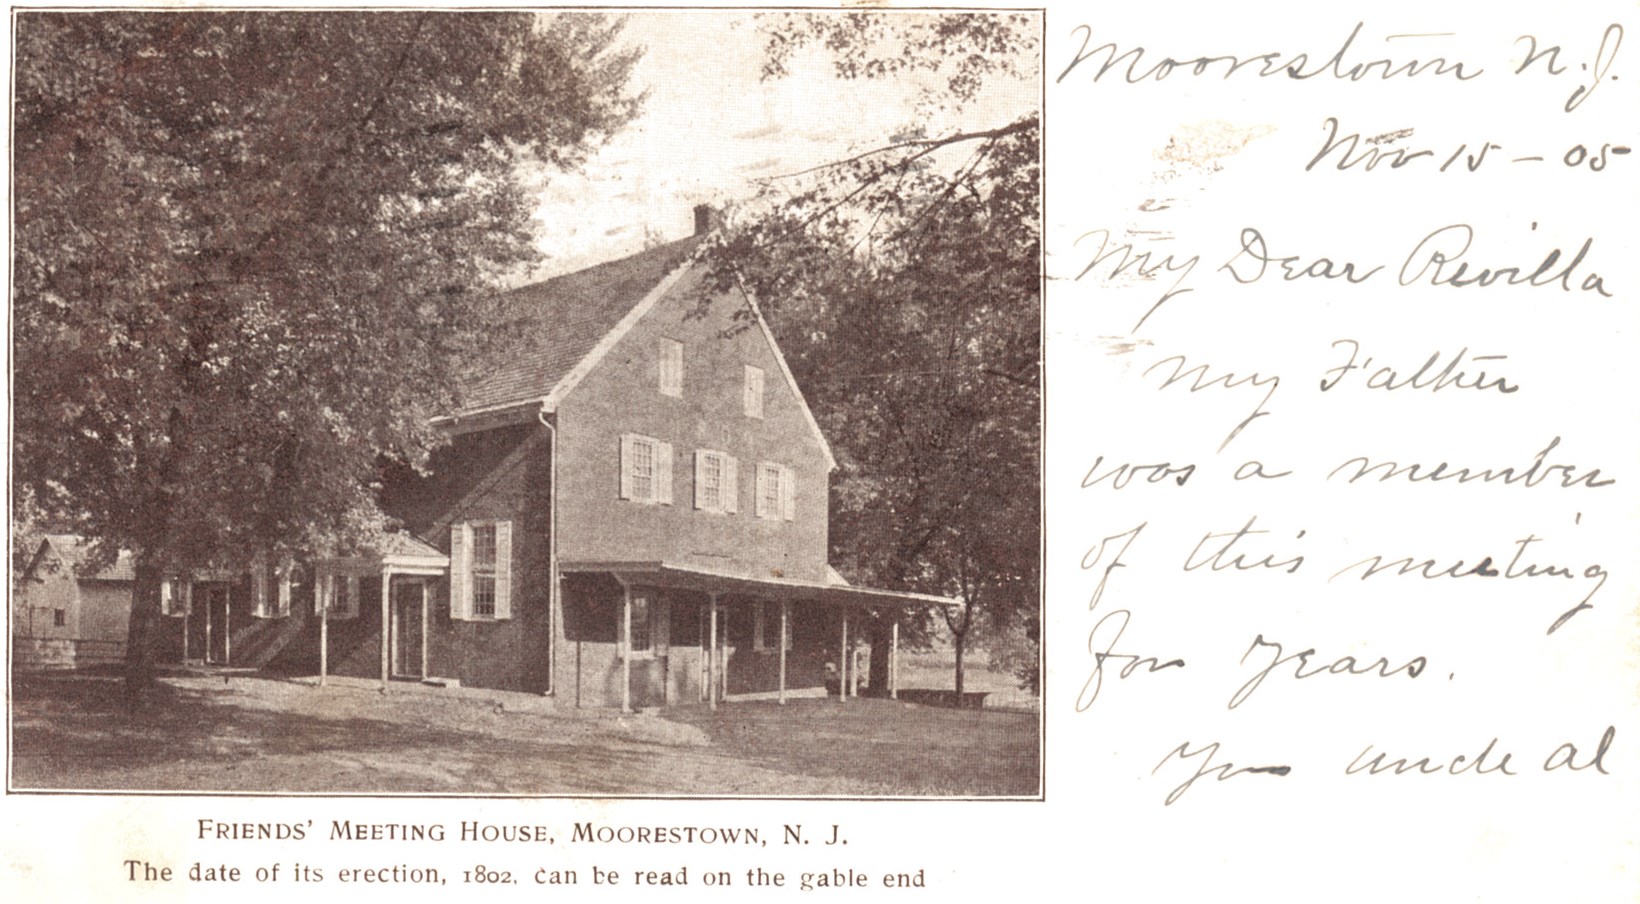 Moorestown N.J.
Nov 15 - 05
My Dear Revilla
my Father
was a member
of this meeting
for years.
Your uncle Al
FRIENDS' MEETING HOUSE, MOORESTOWN, N. J.
The date of its erection, 1802, can be read on the gable end